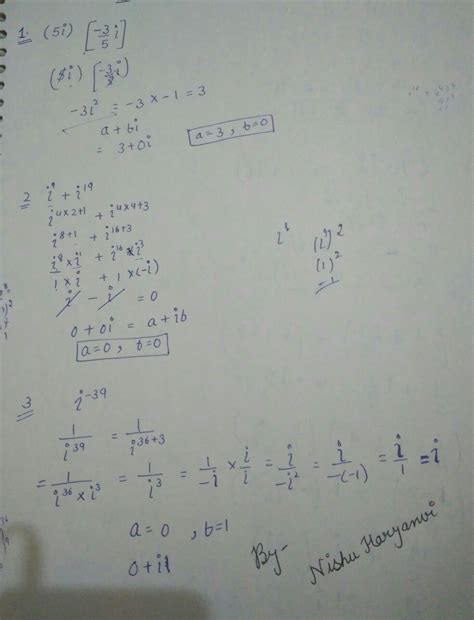 1. (5i) [-3/5 i]
(5i) [-3/5 i]
-3i² = -3 × -1 = 3
a + bi
= 3 + 0i
a = 3 , b = 0
2 i⁹ + i¹⁹
i^4×2+1 + i^4×4+3
i^8+1 + i^16+3
i⁸ × i¹ + i¹⁶ × i³
1 × i + 1 × (-i)
i - i = 0
0 + 0i = a + ib
a = 0 , b = 0
i⁸
(i⁴)²
(1)²
= 1
3 i^-39
1/i³⁹ = 1/i^36+3
= 1/i³⁶ × i³ = 1/i³ = 1/-i × i/i = i/-i² = i/-(-1) = i/1 = i
a = 0 , b = 1
0 + i1
By-
Nishu Haryanvi